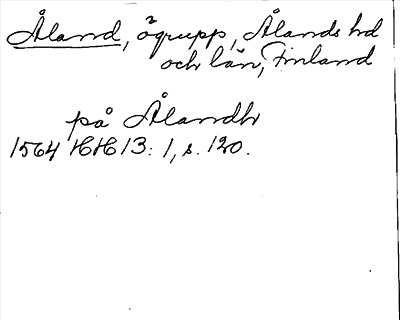 Åland, ögrupp, Ålands hd
och län, Finland
på Ålandh
1564 HH 13: 1, s. 120.